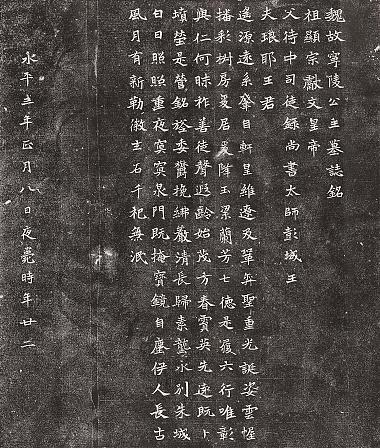 魏故寧陵公主墓誌銘
祖顯宗獻文皇帝
父侍中司徒錄尚書太師彭城王
夫琅耶王君
遙源遠系肇自軒皇維遼及畢弈聖重光誕姿雲幄
播彩椒房爰居爰降玉潔蘭芳七德是履六行唯彰
與仁何昧祚善徒聲遐齡始茂方春賈英先遠既卜
墳塋是營銘旌委欝挽紼嚴清長歸素壟永別朱城
日日照照重夜寞寞泉門既掩寶鏡自塵伊人長古
風月有新勒徽玄石千祀無泯
永平三年正月八日夜薨時年廿二